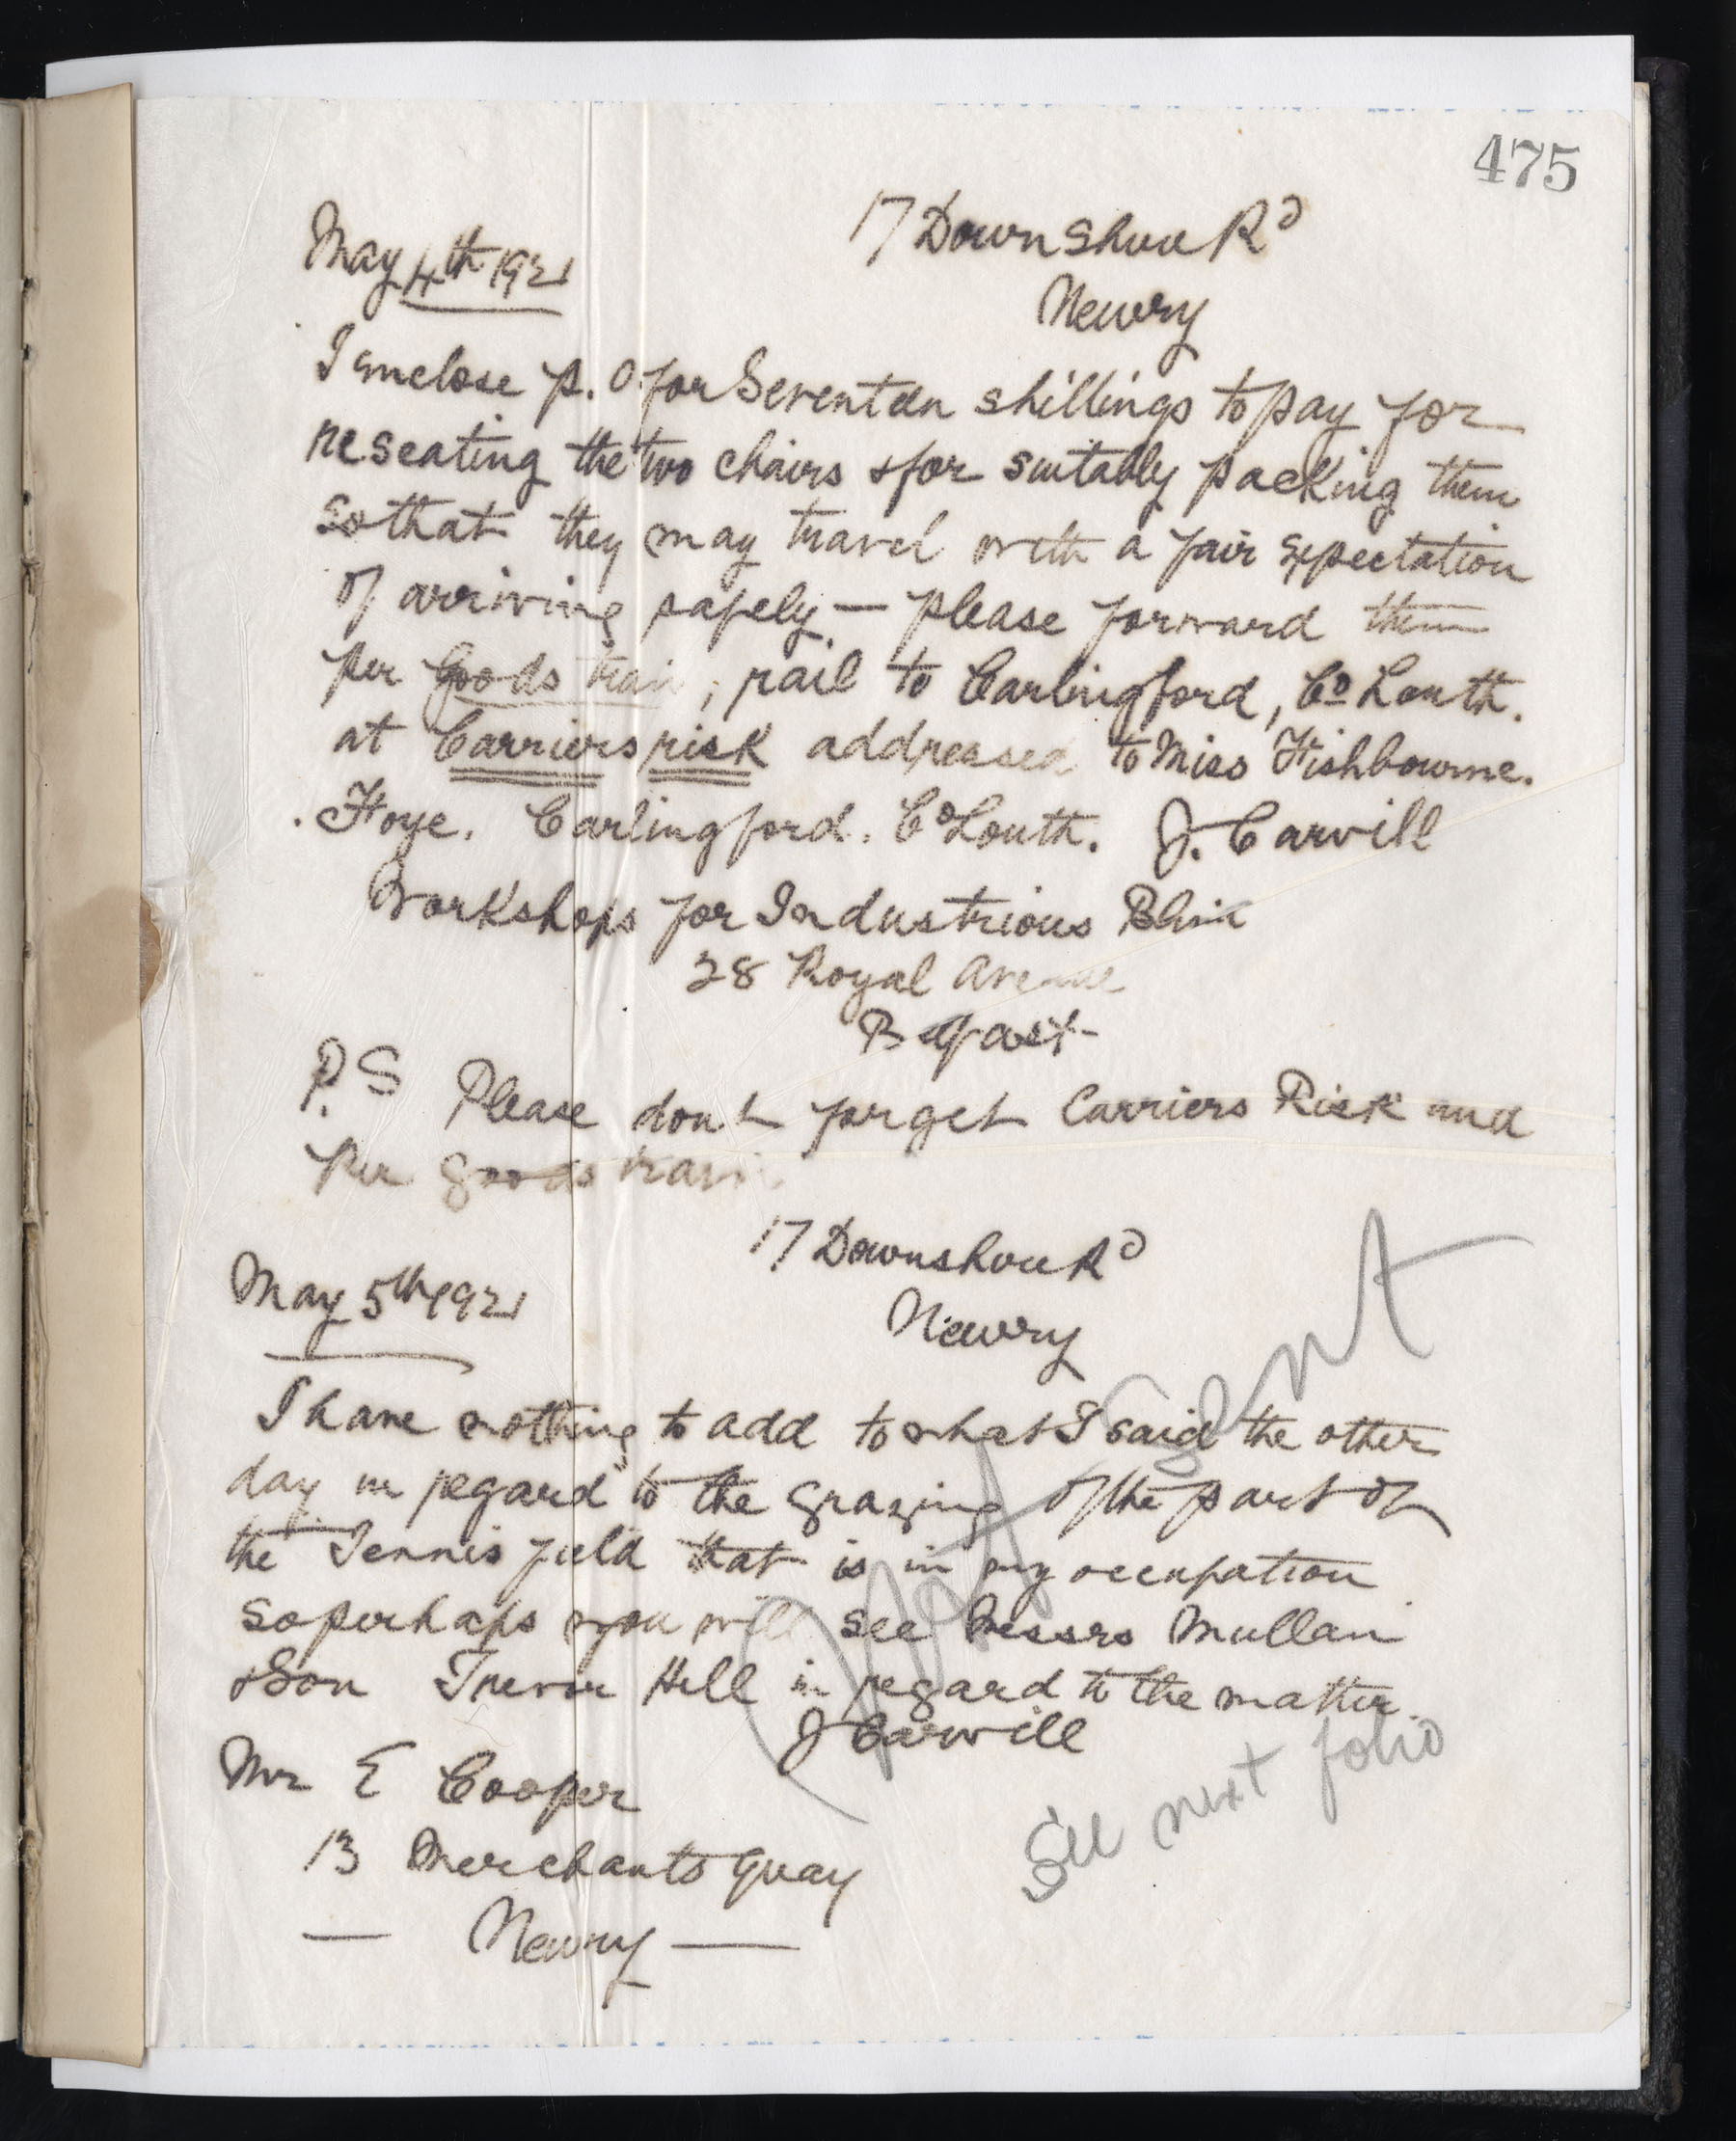 475
17 Downshire Rd
May 4th 1921
Newry
I enclose P.O for Seventeen shillings to pay for
reseating the two chairs & for suitably packing them
so that they may travel with a fair expectation
of arriving safely — please forward them
per Goods train, rail to Carlingford, Co Louth.
at Carriers risk addressed to Miss Fishbourne.
Foye. Carlingford. Co Louth. J. Carvill
Workshops for Industrious Blind
28 Royal Avenue
Belfast
P.S Please dont forget Carriers Risk and
Per goods train
17 Downshire Rd
May 5th 1921
Newry
I have nothing to add to what I said the other
day in regard to the grazing of the part of
the Tennis field that is in my occupation
so perhaps you will see Messrs Mullan
& Son Trevor Hill in regard to the matter.
J Carvill
Mr E Cooper
13 Merchants Quay
— Newry —
(Not sent
See next folio